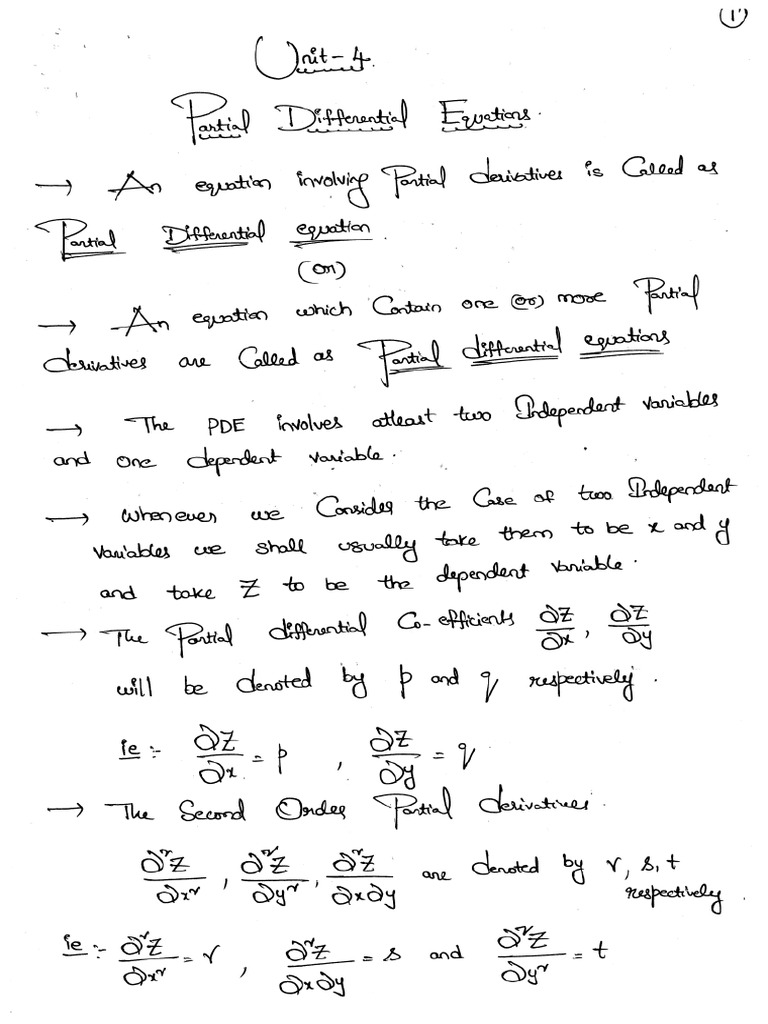 1
Unit-4
Partial Differential Equations.
→ An equation involving Partial derivatives is Called as
Partial Differential equation
(or)
→ An equation which Contain one (or) more Partial
derivatives are Called as Partial differential equations
→ The PDE involves atleast two Independent variables
and one dependent variable.
→ Whenever we Consider the Case of two Independent
variables we shall usually take them to be x and y
and take Z to be the dependent variable.
→ The Partial differential Co-efficients ∂Z/∂x, ∂Z/∂y
will be denoted by p and q respectively.
ie :- ∂Z/∂x = p , ∂Z/∂y = q
→ The Second Order Partial derivatives.
∂²Z/∂x², ∂²Z/∂y², ∂²Z/∂x∂y are denoted by r, s, t
respectively.
ie :- ∂²Z/∂x² = r , ∂²Z/∂x∂y = s and ∂²Z/∂y² = t